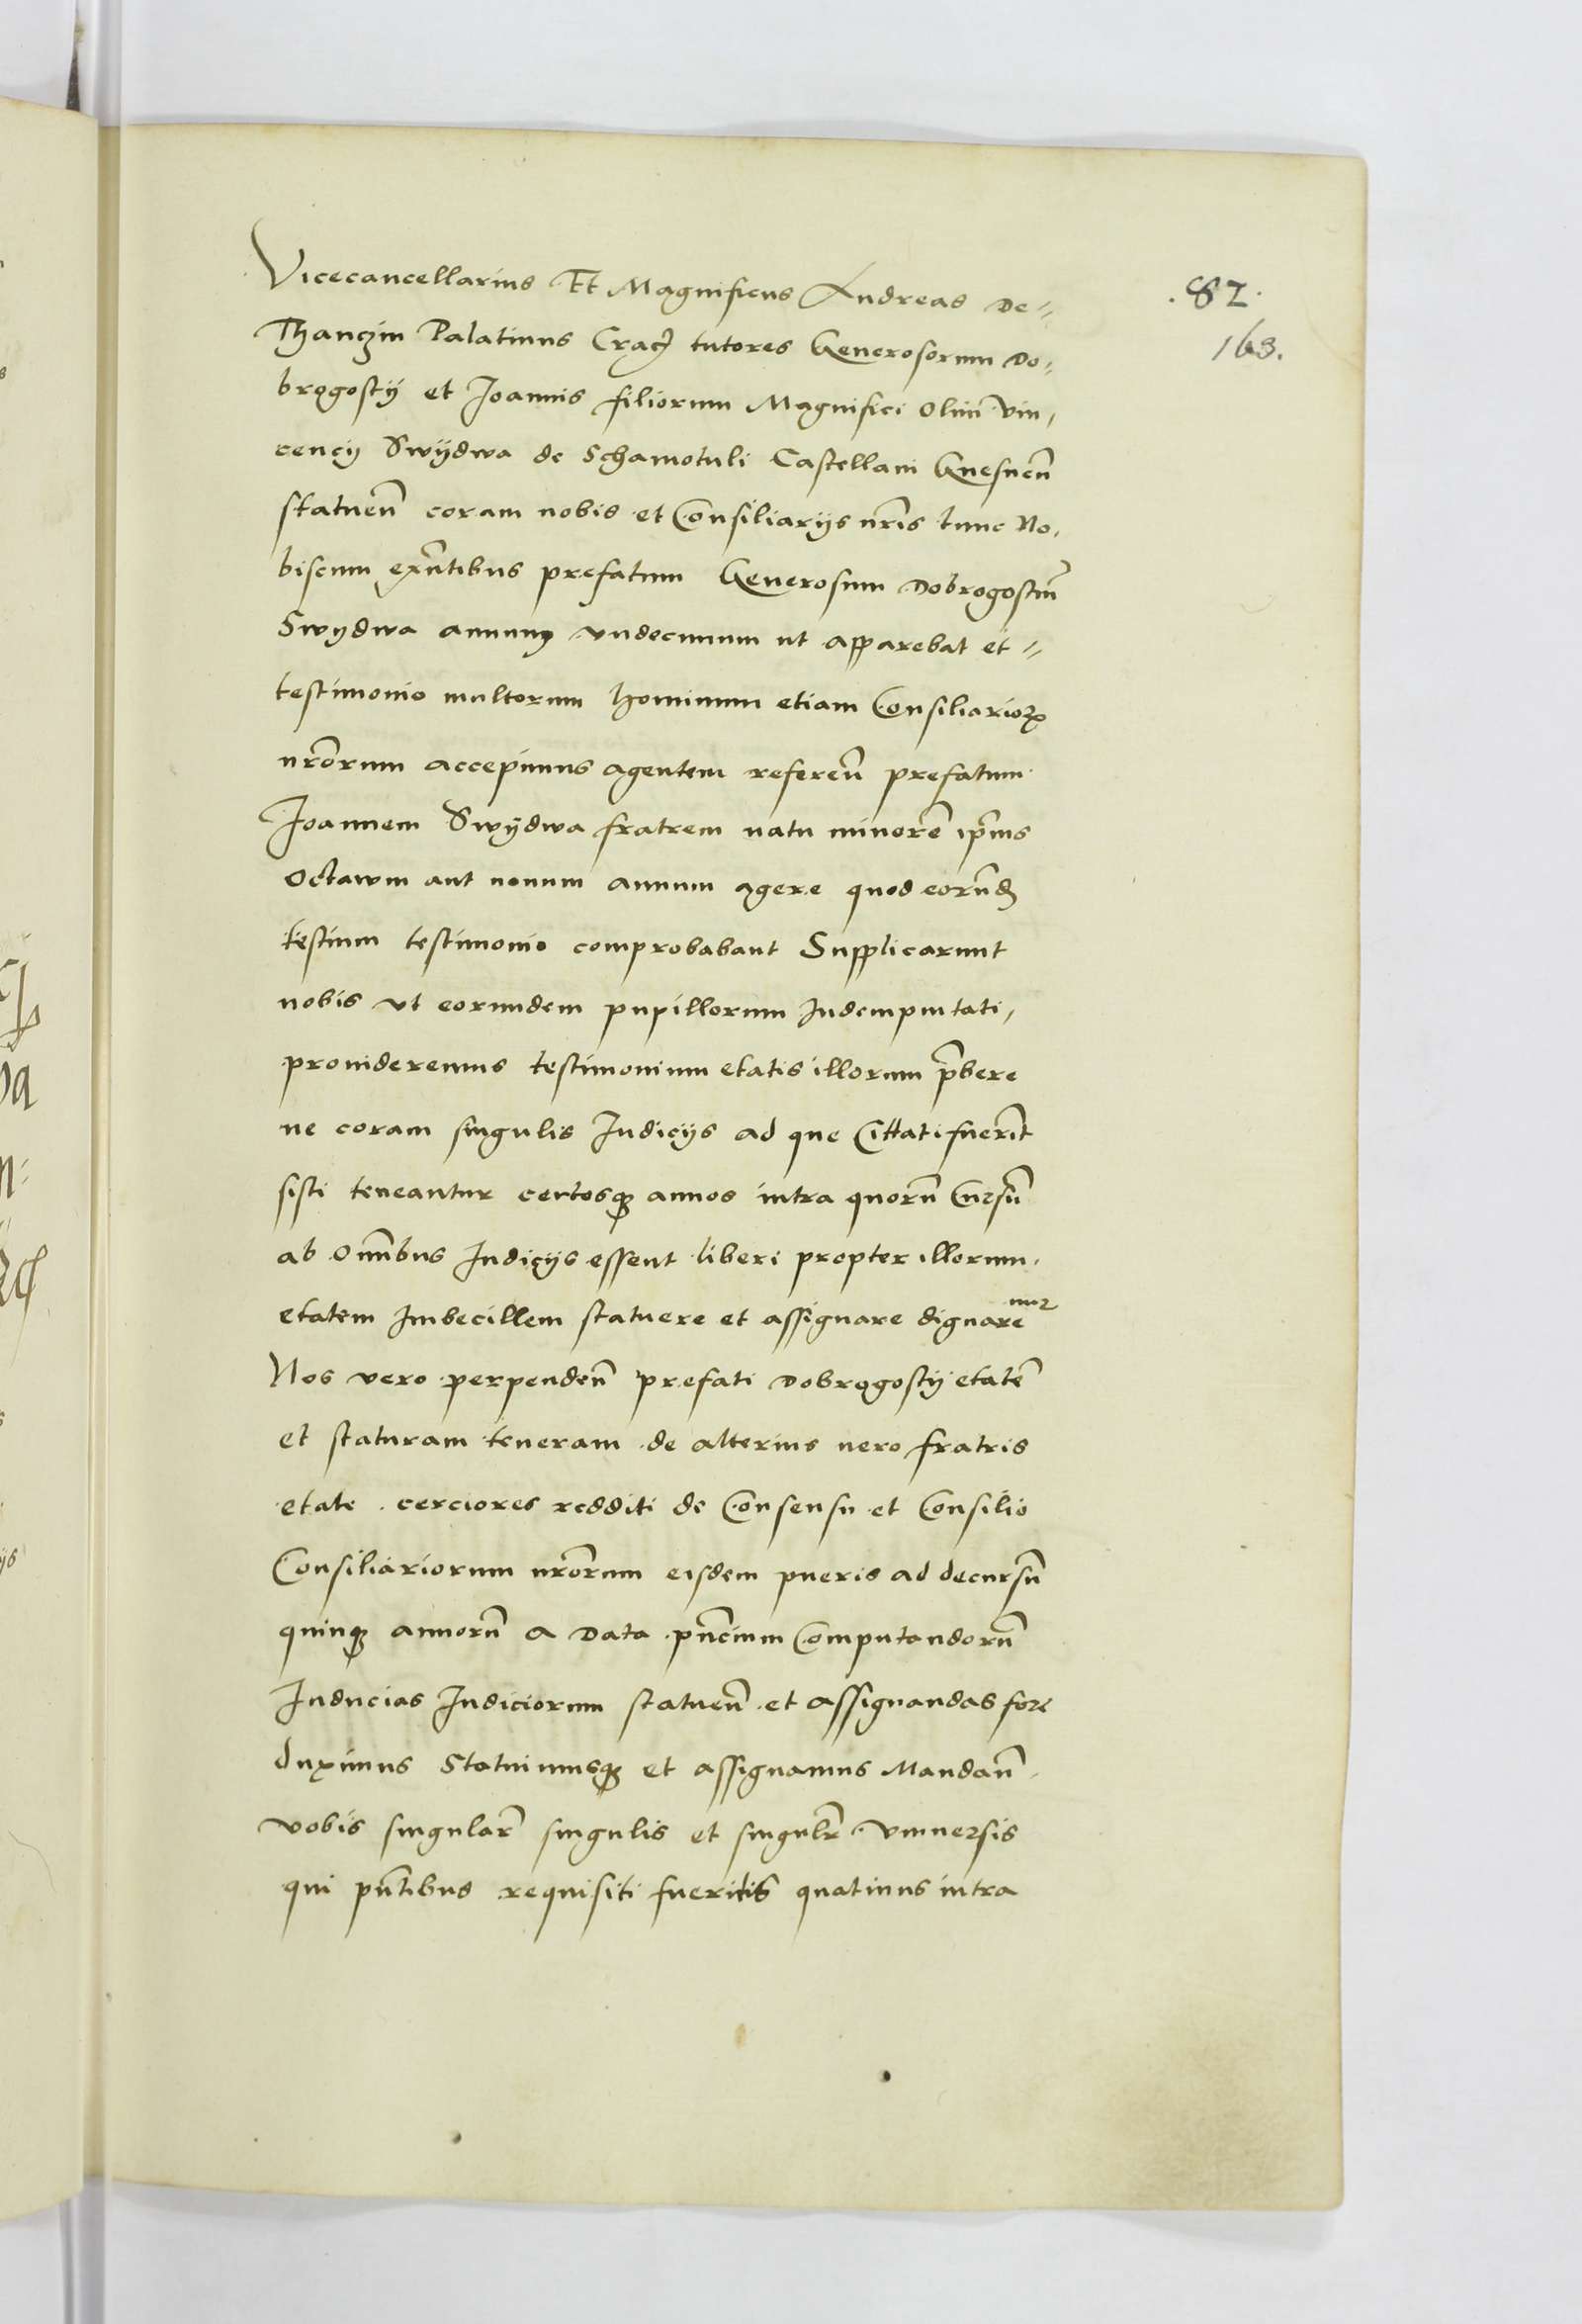 Vicecancellarius Et Magnificus Andreas De=
.82.
Thanczin Palatinus Crac) tutores Generosorum Do=
163.
brogostij et Joannis filiorum Magnifici Olim Vin,
cencij Swijdwa de Schamotuli Castellani Gnesnen̄
statuen̄ coram nobis et Consiliarijs nr̄is tunc No,
biscum exn̄tibus prefatum Generosum Dobrogostiū
Swydwa annum vndecimum ut apparebat et =
testimonio multorum hominum etiam Consiliarioꝝ
nr̄orum accepimus agentem referen̄ prefatum
Joannem Swijdwa fratrem natu minorē ip̄ius
Octawm aut nonum annum agere quod eorūd
testium testimonio comprobabant Supplicarunt
nobis vt eorundem pupillorum Indempnitati,
prouideremus testimonium etatis illorum p̄bere
ne coram singulis Judicijs ad que Cittati fuerīt
sisti teneantur certosqꝫ annos intra quorū Cursū
ab Omībus Judicijs essent liberi propter illorum
etatem Imbecillem statuere et assignare dignaremur
Nos vero perpenden̄ prefati Dobrogostij etatē
et staturam teneram de alterius uero fratris
etate cerciores redditi de Consensu et Consilio
Consiliariorum nr̄orum eisdem pueris ad decursū
quinqꝫ annorū a Data pn̄cium Computandorū
Inducias Judiciorum statuen̄ et assignandas fore
duximus Statuimusqꝫ et assignamus Mandan̄
vobis singular̄ singulis et singulr̄ Vniuersis
qui pn̄tibus requisiti fueritis quatinus intra